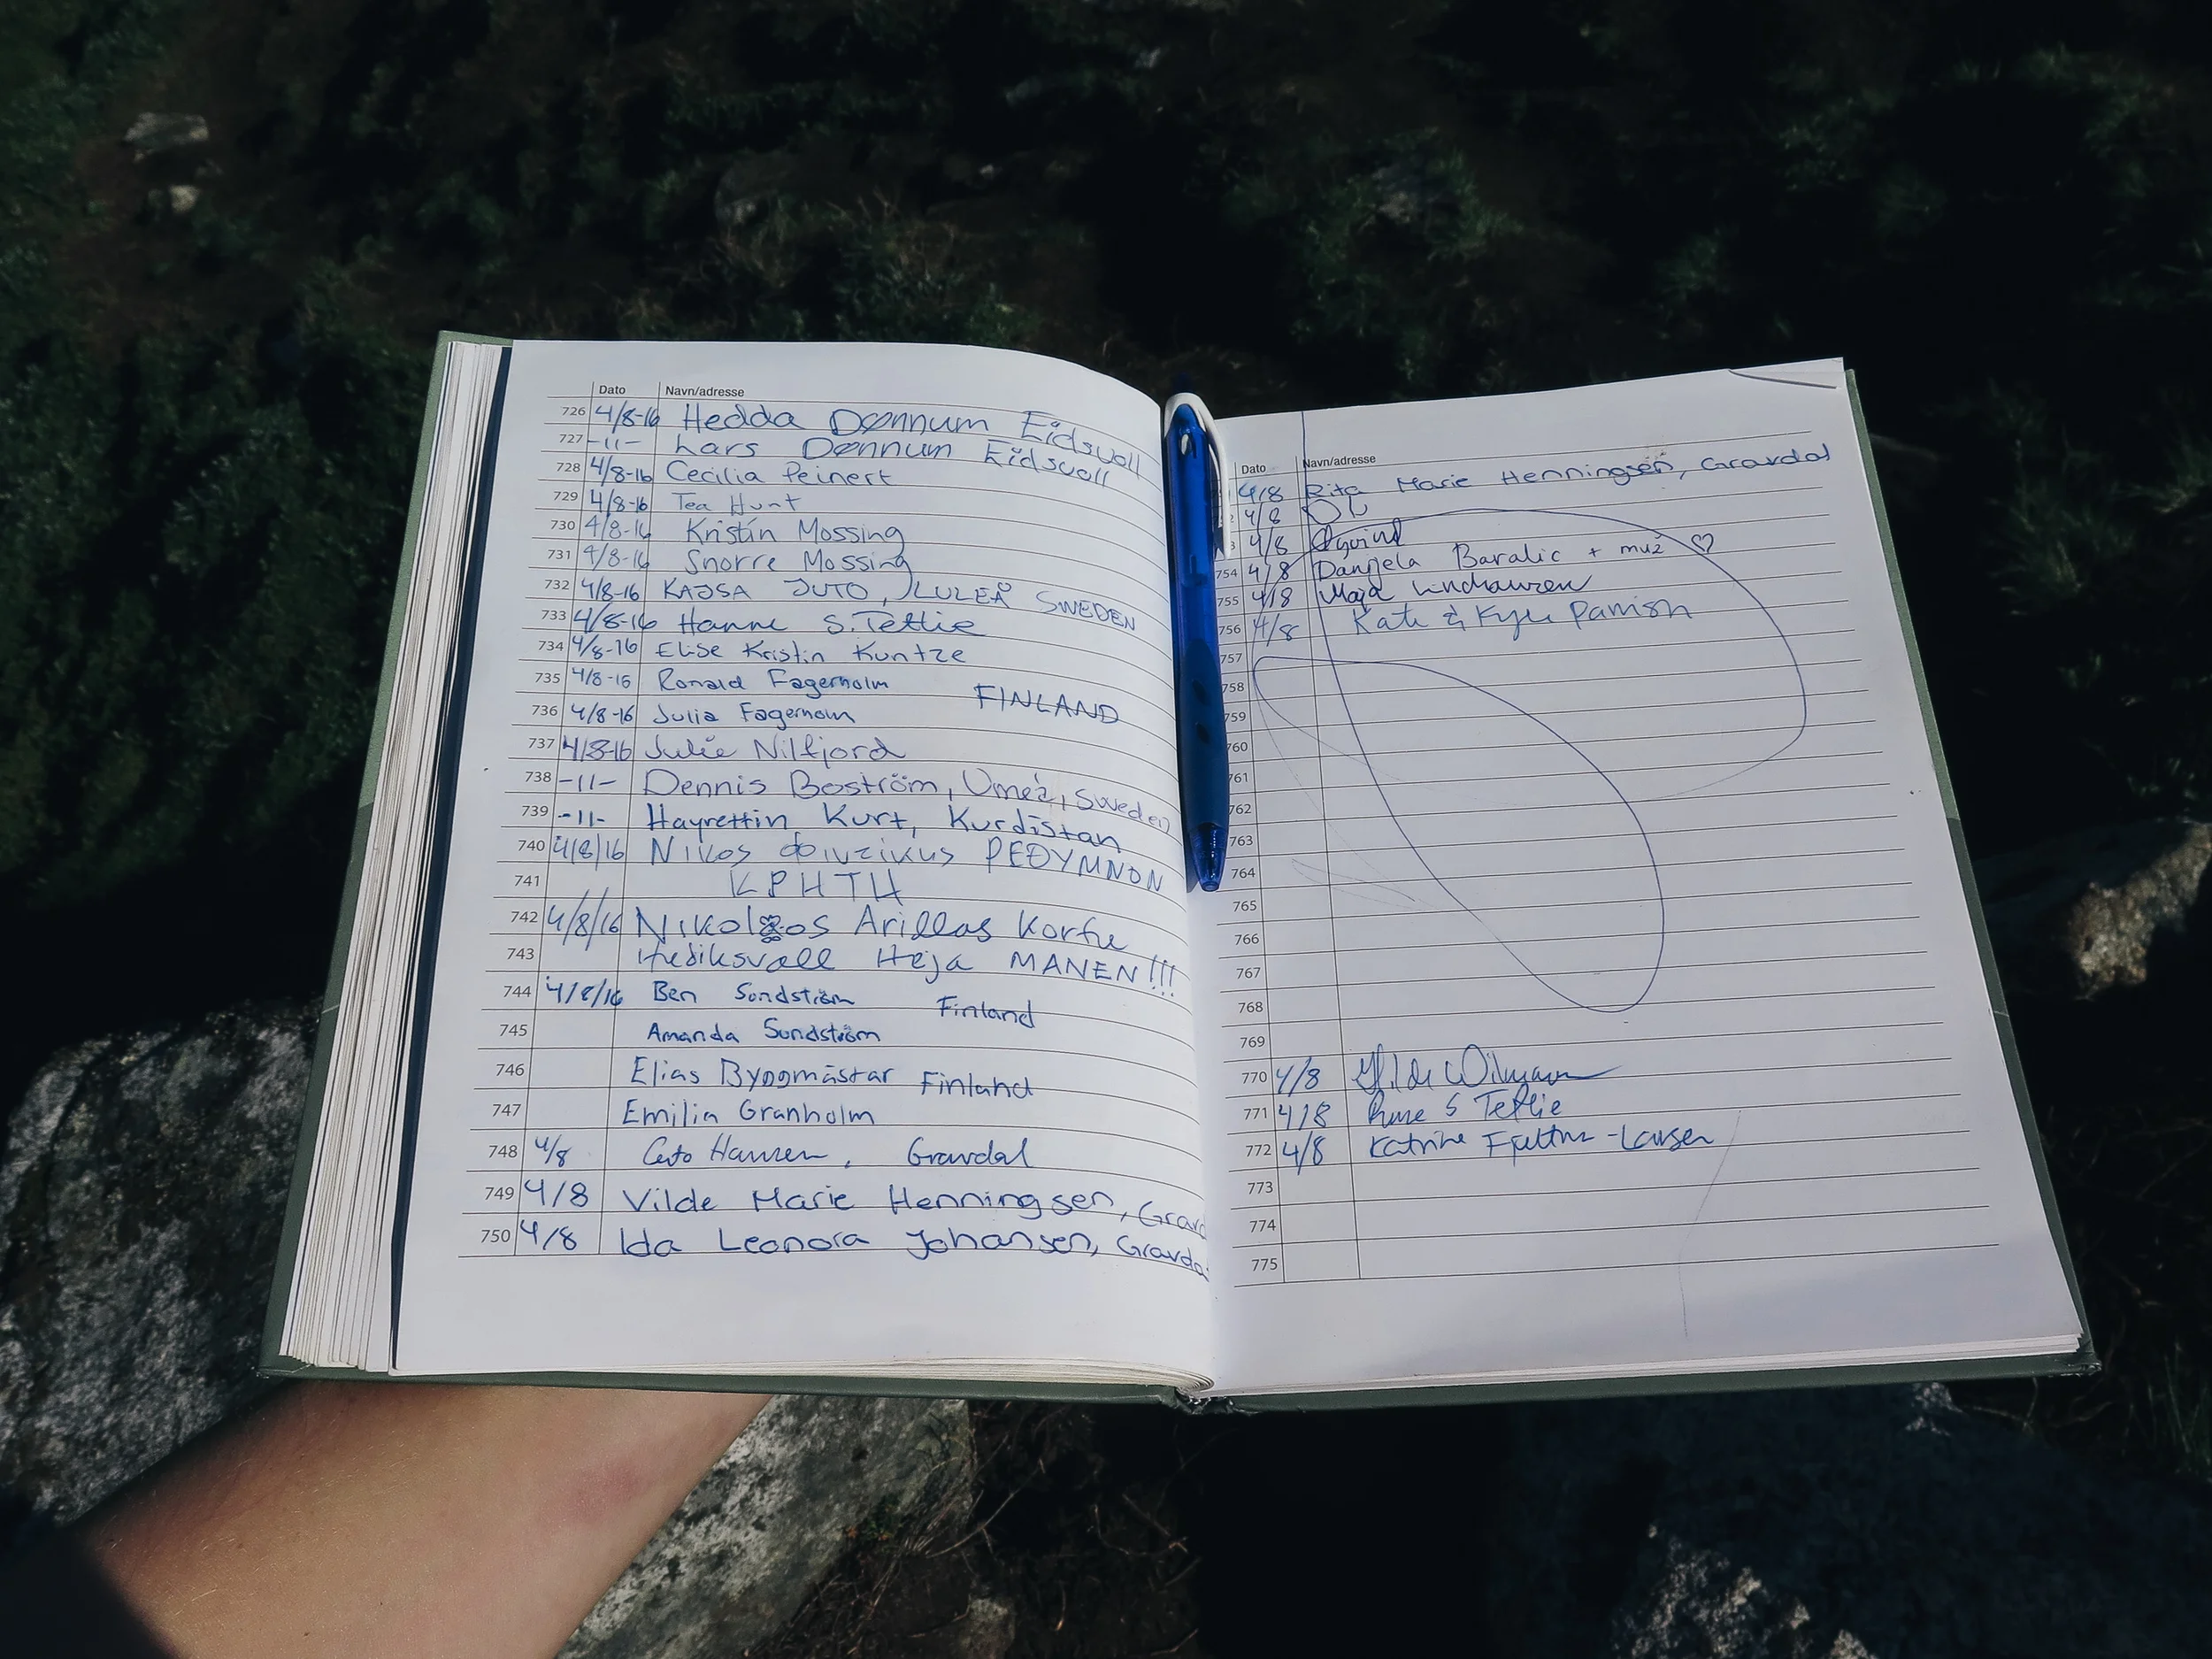 Dato Navn/adresse
726 4/8-16 Hedda Dønnum Eidsvoll
727 -11- Lars Dønnum Eidsvoll
728 4/8-16 Cecilia Peinert
729 4/8-16 Tea Hunt
730 4/8-16 Kristin Mossing
731 4/8-16 Snorre Mossing
732 4/8-16 KAJSA JUTO, LULEÅ SWEDEN
733 4/8-16 Hanne S. Tetlie
734 4/8-16 Elise Kristin Kuntze
735 4/8-15 Ronald Fagerholm FINLAND
736 4/8-16 Julia Fagerholm
737 4/8-16 Julie Nilfjord
738 -11- Dennis Boström, Umeå, Sweden
739 -11- Hayrettin Kurt, Kurdistan
740 4/8/16 Nikos
741 ΚΡΗΤΗ
742 4/8/16 Arillas Korfu
743 Heja MANEN!!!
744 4/8/16 Ben Sundström Finland
745 Amanda Sundström
746 Elias Byggmästar Finland
747 Emilia Granholm
748 4/8 Hansen, Gravdal
749 4/8 Vilde Marie Henningsen, Gravd
750 4/8 Ida Leonora Johansen, Gravda
Dato Navn/adresse
4/8 Rita Marie Henningsen, Gravdal
4/8
4/8 Øyvind
754 4/8 Danijela Baralic + muž ♡
755 4/8 Maja
756 4/8 Kate & Kyle Parrish
757
758
759
760
761
762
763
764
765
766
767
768
769
770 4/8
771 4/8 S Tetlie
772 4/8 Katrine -Larsen
773
774
775